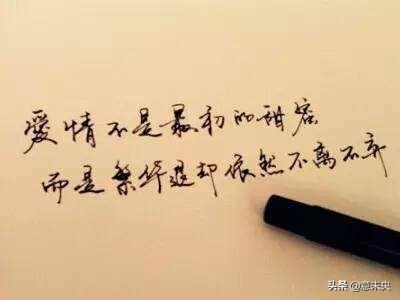 愛情不是最初的甜蜜
而是繁华退却依然不离不弃
头条@意未央